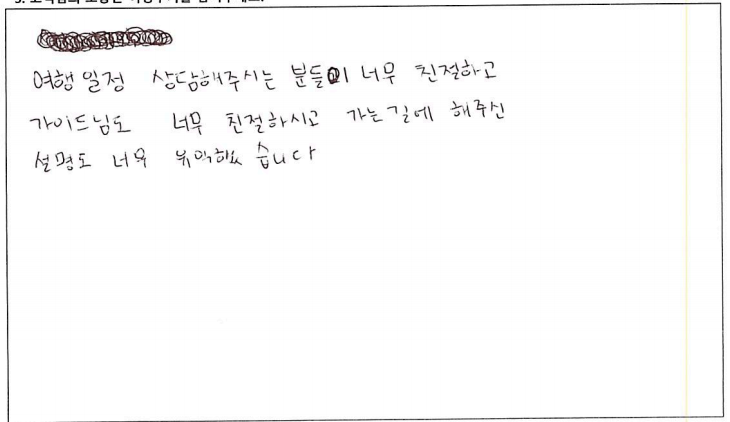 여행 일정 상담해주시는 분들이 너무 친절하고
가이드님도 너무 친절하시고 가는길에 해주신
설명도 너무 유익했습니다